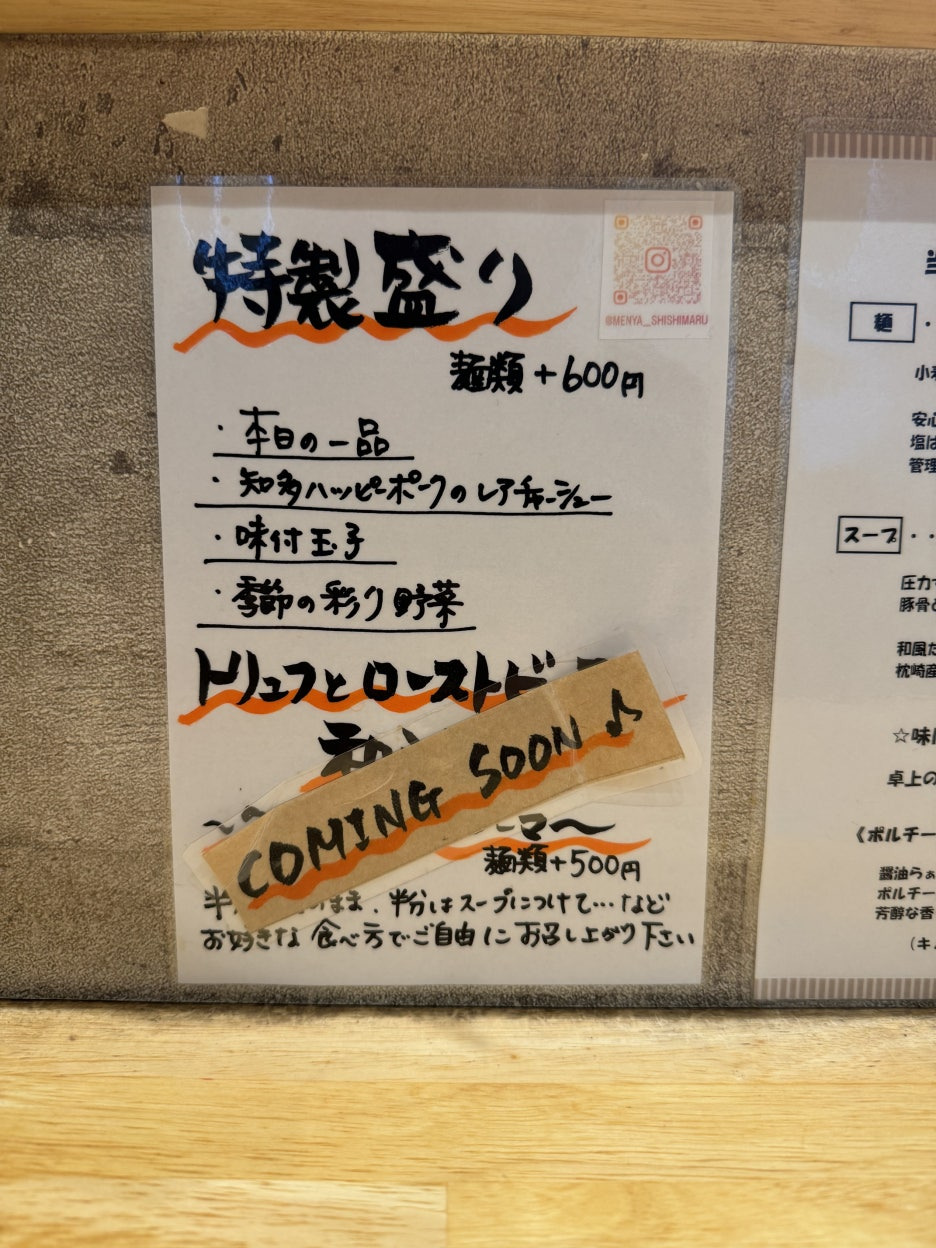 特製盛り
@MENYA_SHISHIMARU
麺類+600円
・本日の一品
・知多ハッピーポークのレアチャーシュー
・味付玉子
・季節の彩り野菜
トリュフとロースト
COMING SOON♪
麺類+500円
まま、半分はスープにつけて…など
お好きな食べ方でご自由にお召し上がり下さい
麺・
小
安心
塩は
管理
スープ・・
圧力
豚骨
和風だ
枕崎産
☆味
卓上の
《ポルチー
醤油らぁ
ポルチー
芳醇な香
(キ